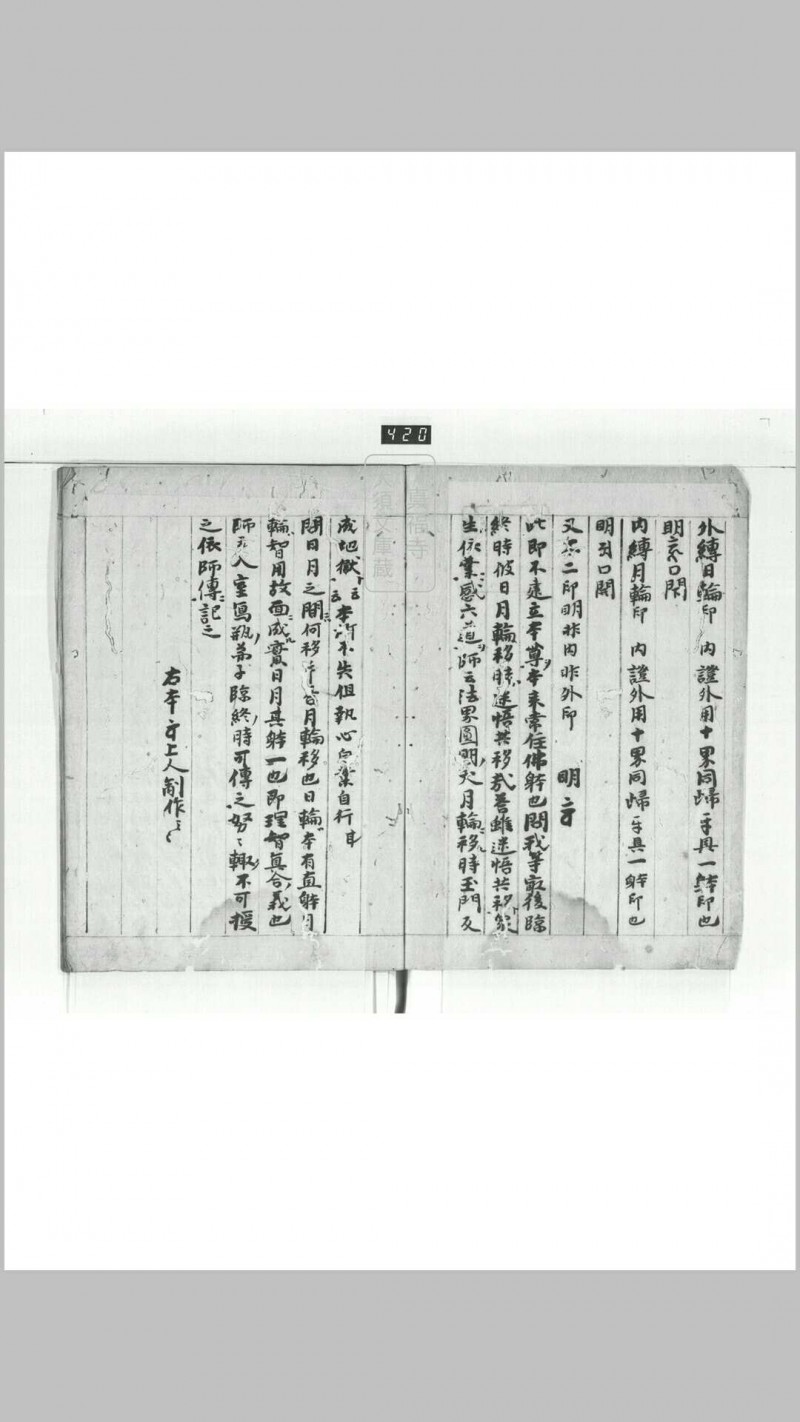 420
真福寺
大須文庫蔵
外縛日輪印 内證外用十界同歸互具一躰印也
明 口閇
内縛月輪印 内證外用十界同歸互具一躰印也
明 口開
又 二印明非内非外印 明
此即不遠立本尊本来常住佛躰也問我等最後臨
終時彼日月輪移時迷悟共移哉答雖迷悟共移
生依業感六道師云法界圓明 月輪移時玉門反
成地獄云云 本 不失但執心 業自行耳
問日月之間何移 答月輪移也日輪本有直躰月
輪智用故面成實日月其躰一也即理智真合義也
師云入室寫瓶弟子臨終時可傳之努々輙不可授
之依師傳記之
右本 上人制作